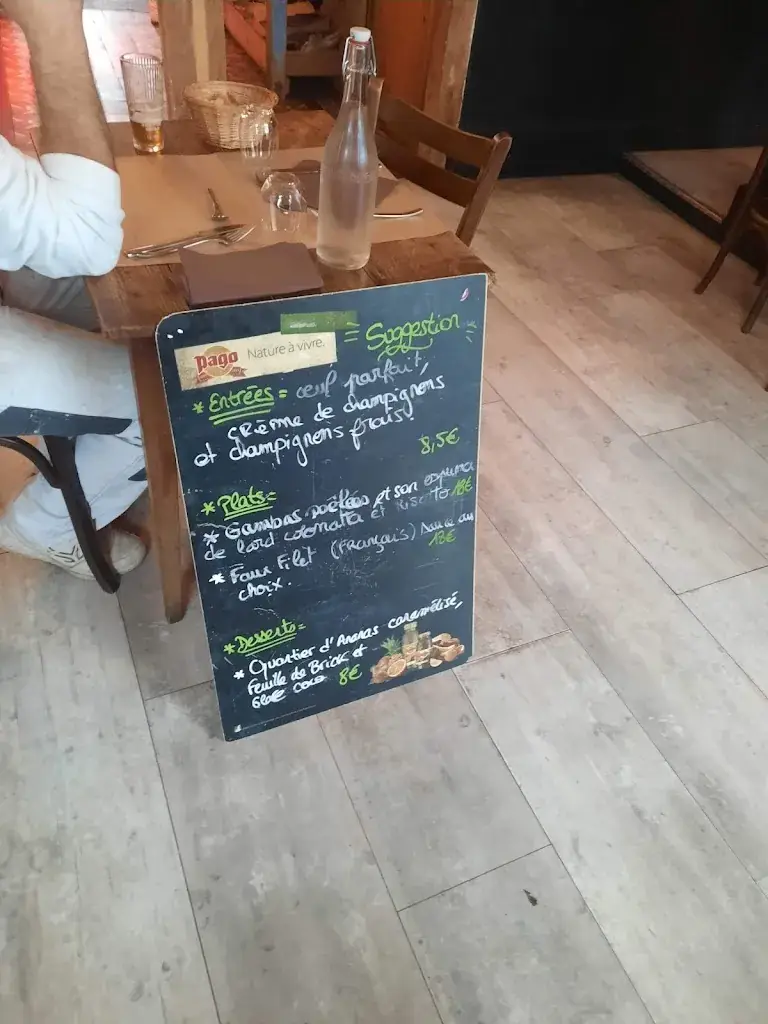 pago Nature à vivre.
= Suggestion =
* Entrées = œuf parfait,
crème de champignons
et champignons frais.
8,5€
* Plats =
* Gambas poêlées et son espuma
de lard colonnata et Risotto 18€
* Faux Filet (Français) sauce au
choix. 18€
* Desserts =
* Quartier d'Ananas caramélisé,
Feuille de Brick et
Glace coco 8€